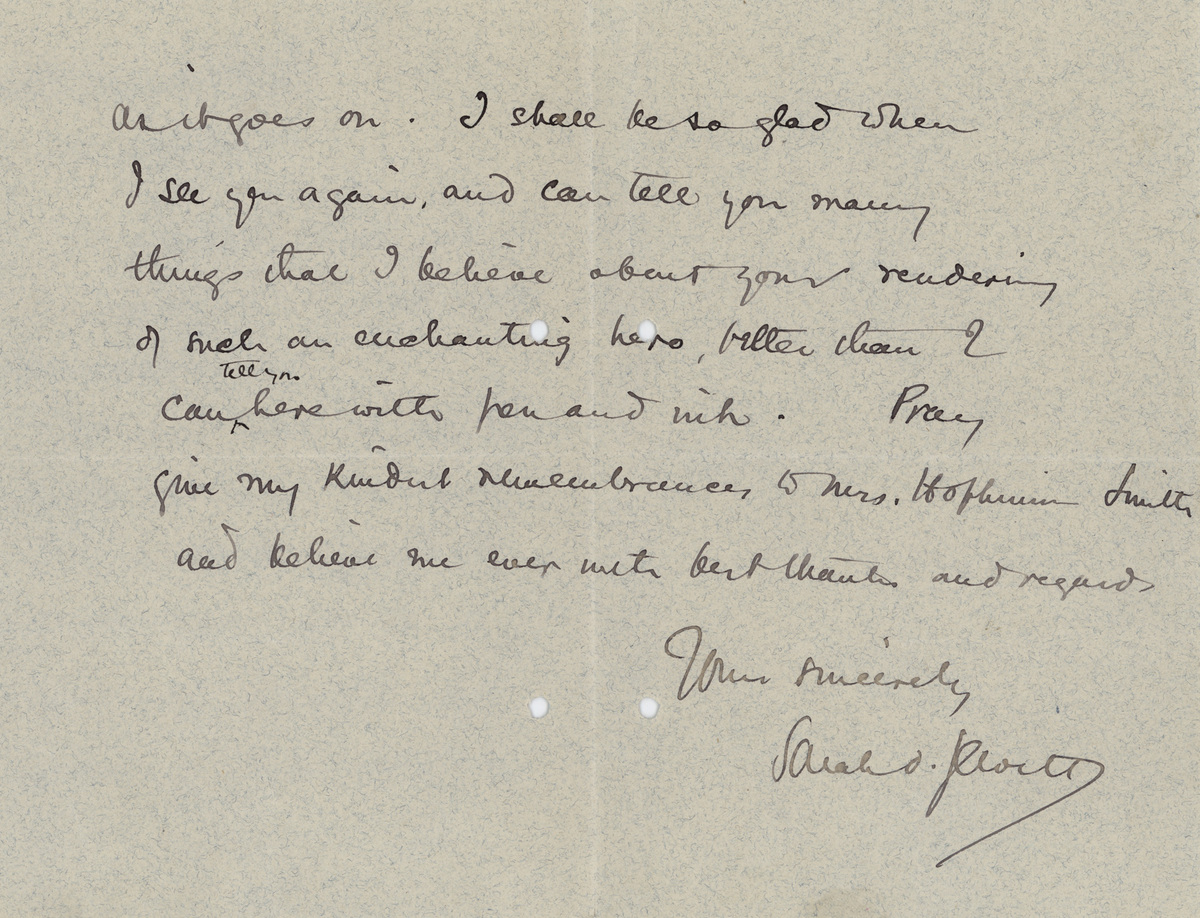 as it goes on. I shall be so glad when
I see you again, and can tell you many
things that I believe about your rendering
of such an enchanting hero, better than I
tell you
can ‸ here with pen and ink. Pray
give my kindest remembrances to Mrs. Hopkinson Smith
and believe me ever with best thanks and regards
Yours sincerely
Sarah O. Jewett